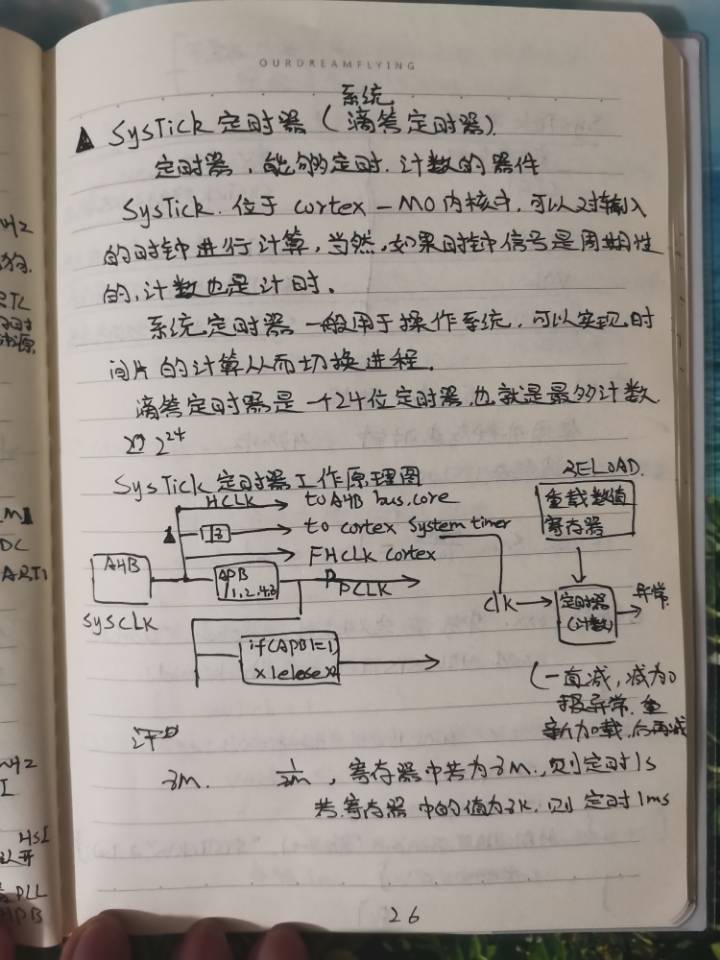 OURDREAMFLYING
系统
▲ SysTick 定时器（滴答定时器）.
定时器，能够定时.计数的器件
SysTick.位于 cortex-M0内核中.可以对输入
的时钟进行计算，当然，如果时钟信号是周期性
的，计数也是计时.
系统定时器一般用于操作系统，可以实现时
间片的计算从而切换进程.
滴答定时器是一个24位定时器.也就是最多计数
2²⁴
SysTick定时器工作原理图
RELOAD.
HCLK to AHB bus.core
重载数值
寄存器
to cortex System timer
FHCLK Cortex
AHB
APB
PCLK
SYSCLK
clk
定时器
(计数)
异常.
if(APB1=1)
(一直减，减为0
报异常.重
新加载,后再减
8M. 1/8M，寄存器中若为8M.,则定时1s
若.寄存器中的值为8K.则定时1ms
26